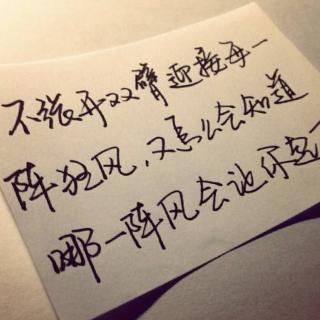 不张开双臂迎接每一
阵狂风，又怎么会知道
哪一阵风会让你飞